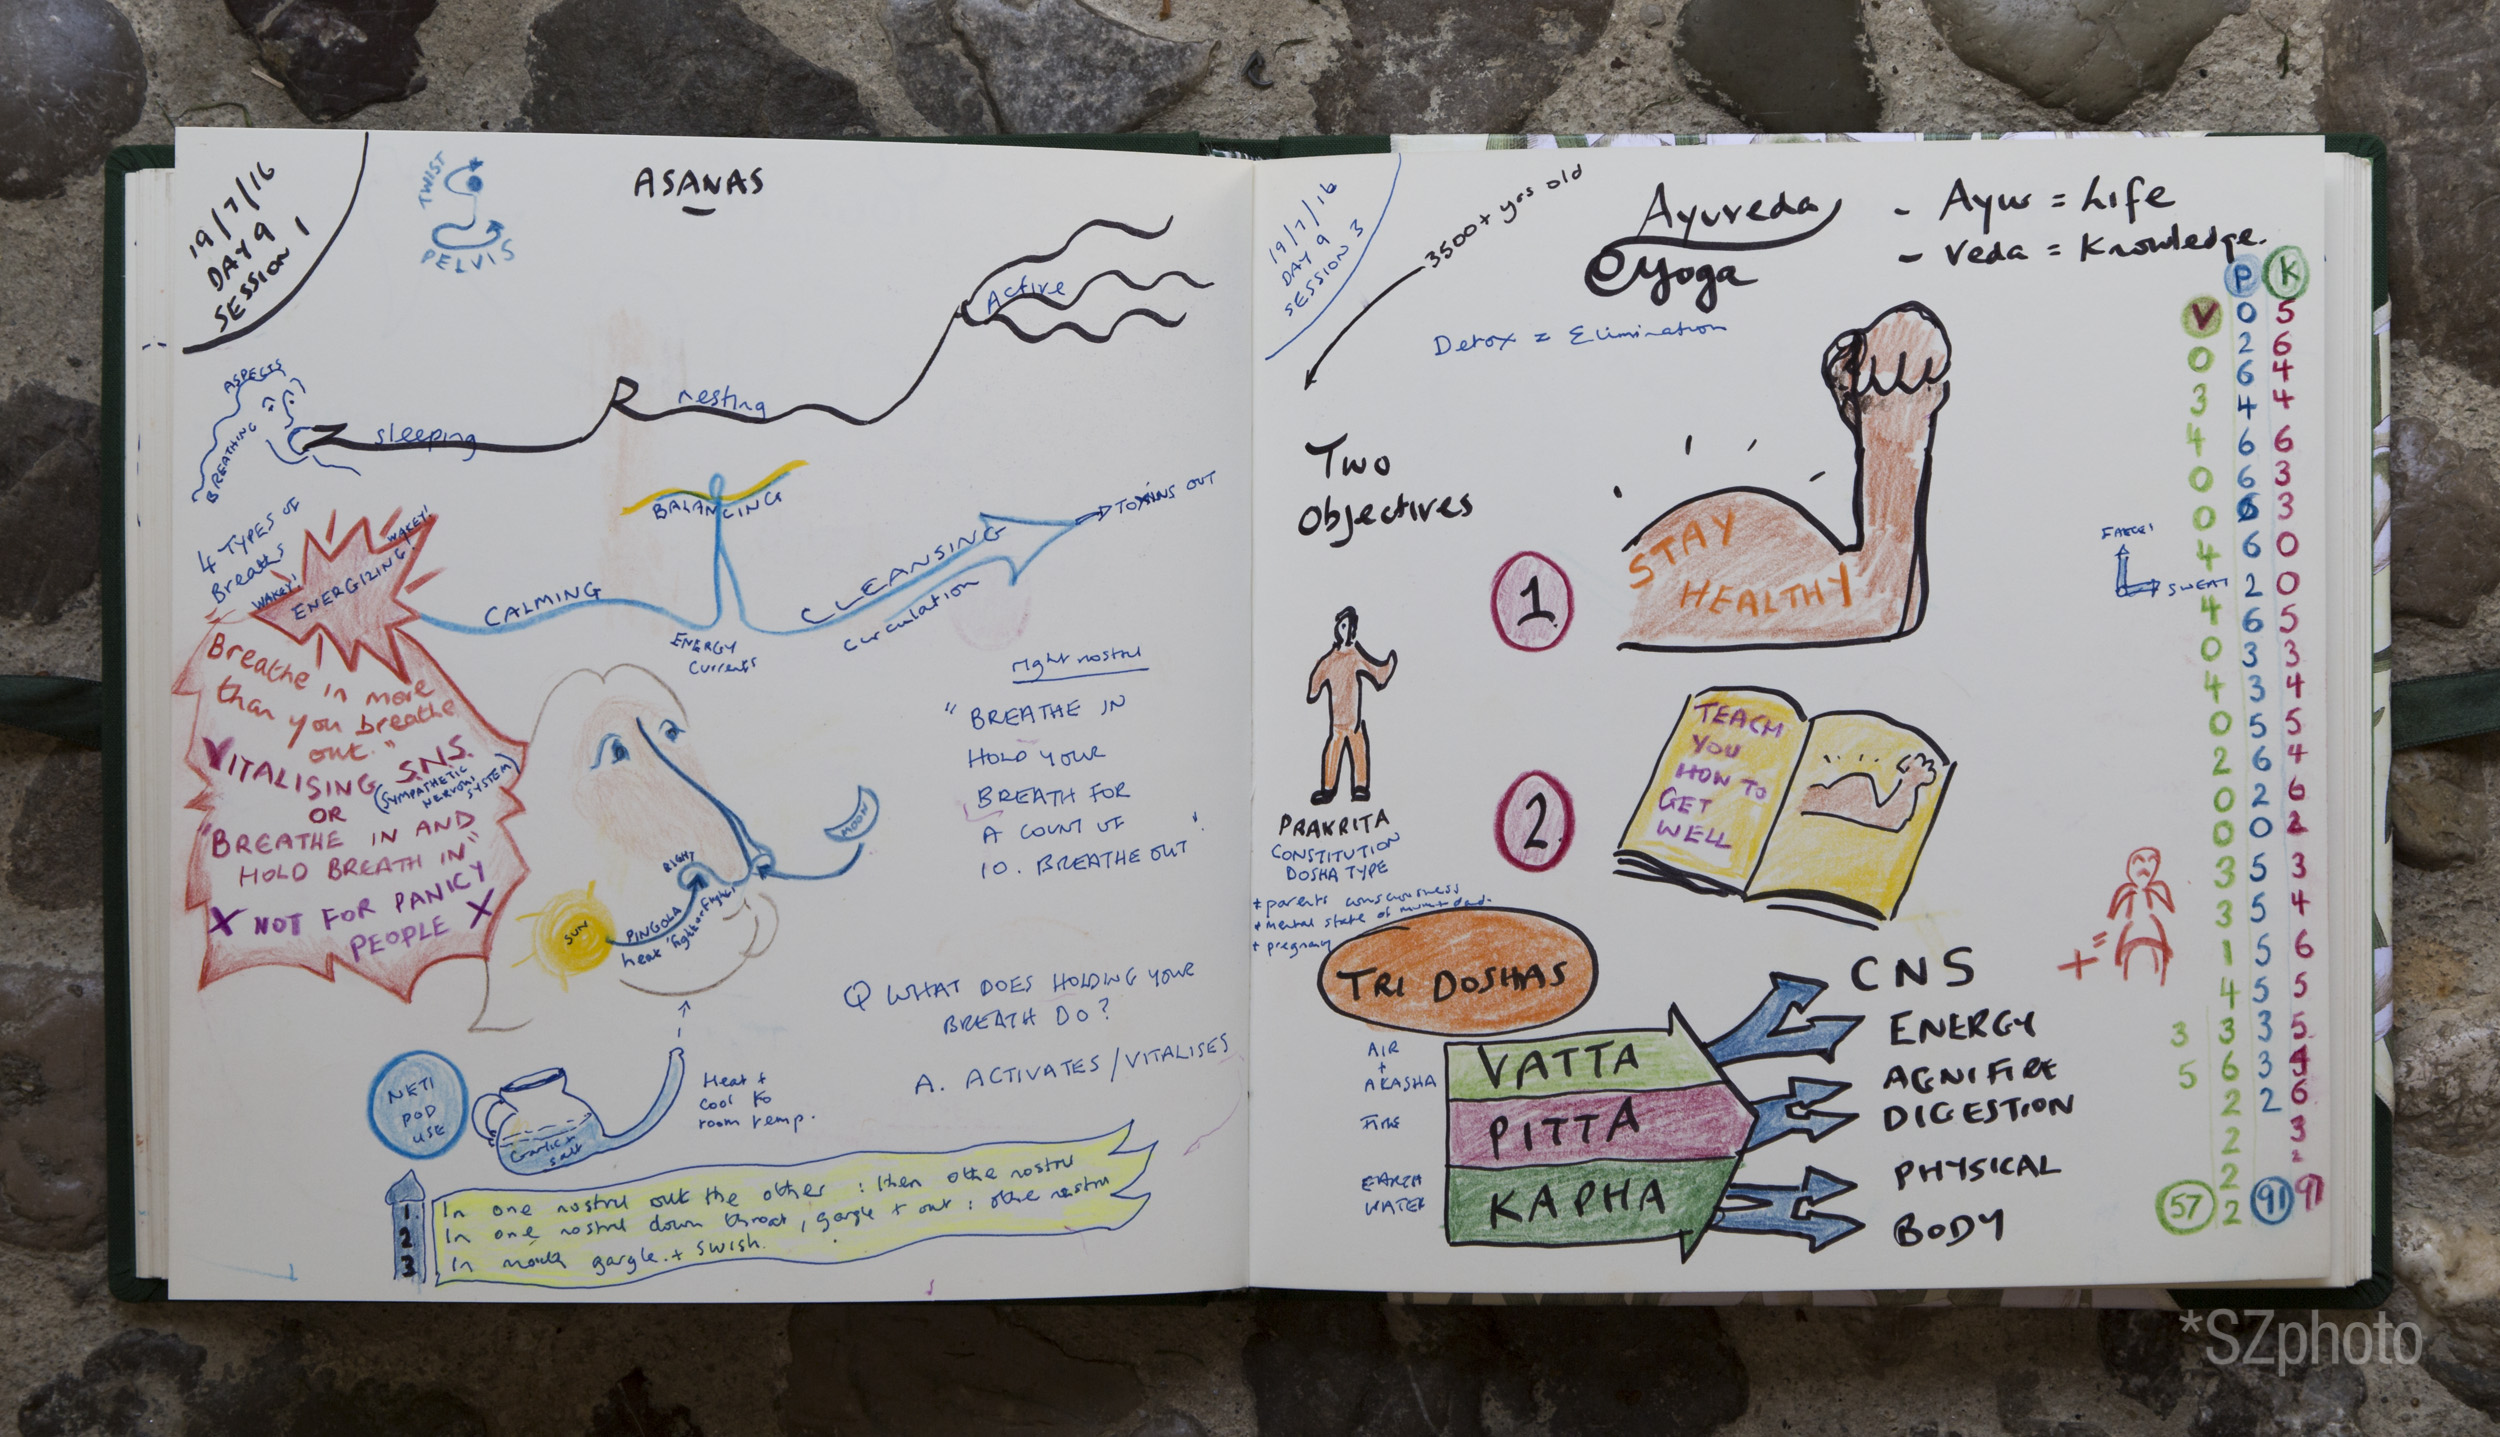 19/7/16
DAY 9
SESSION 1
TWIST
PELVIS
ASANAS
Active
resting
sleeping
ASPECTS
BREATHING
4 TYPES OF
Breaths
WAKEY!
ENERGIZING!
WAKEY!
CALMING
BALANCING
ENERGY
Currents
CLEANSING
Circulation
TOXINS OUT
Breathe in more
than you breathe
out."
VITALISING S.N.S.
(SYMPATHETIC
NERVOUS
SYSTEM)
OR
"BREATHE IN AND
HOLD BREATH IN"
X NOT FOR PANICY X
PEOPLE
right nostril
"BREATHE IN
HOLD YOUR
BREATH FOR
A COUNT OF
10. BREATHE OUT".
MOON
RIGHT
SUN
PINGOLA
heat 'fight or flight'
Q WHAT DOES HOLDING YOUR
BREATH DO?
A. ACTIVATES/VITALISES
NETI
POD
USE
Garlic +
salt
Heat +
cool to
room temp.
1 In one nostril out the other : then othe nostril
2 In one nostril down throat, gargle + out : othe nostril
3 In mouth gargle + swish.
19/7/16
DAY 9
SESSION 3
3500+ yrs old
Ayureda
e yoga
- Ayus = Life
- Veda = Knowledge.
Detox = Elimination
Two
Objectives
1
STAY
HEALTHY
2
TEACH
YOU
HOW TO
GET
WELL
PRAKRITA
CONSTITUTION
DOSHA TYPE
+ parents consciousness
+ mental state of mum + dad.
+ pregnancy
TRI DOSHAS
AIR
+
AKASHA
VATTA
CNS
ENERGY
FIRE
PITTA
AGNI FIRE
DIGESTION
EARTH
WATER
KAPHA
PHYSICAL
BODY
SWEAT
+=
V
0
3
4
0
0
4
4
0
4
0
2
0
0
3
3
1
4
3 3
5 6
2
2
2
2
57
P
0
2
6
4
6
6
6
6
2
6
3
3
5
6
2
0
5
5
5
5
3
3
2
91
K
5
6
4
4
6
3
3
0
0
5
3
4
5
4
6
2
3
4
6
5
5
4
6
3
2
91
*SZphoto